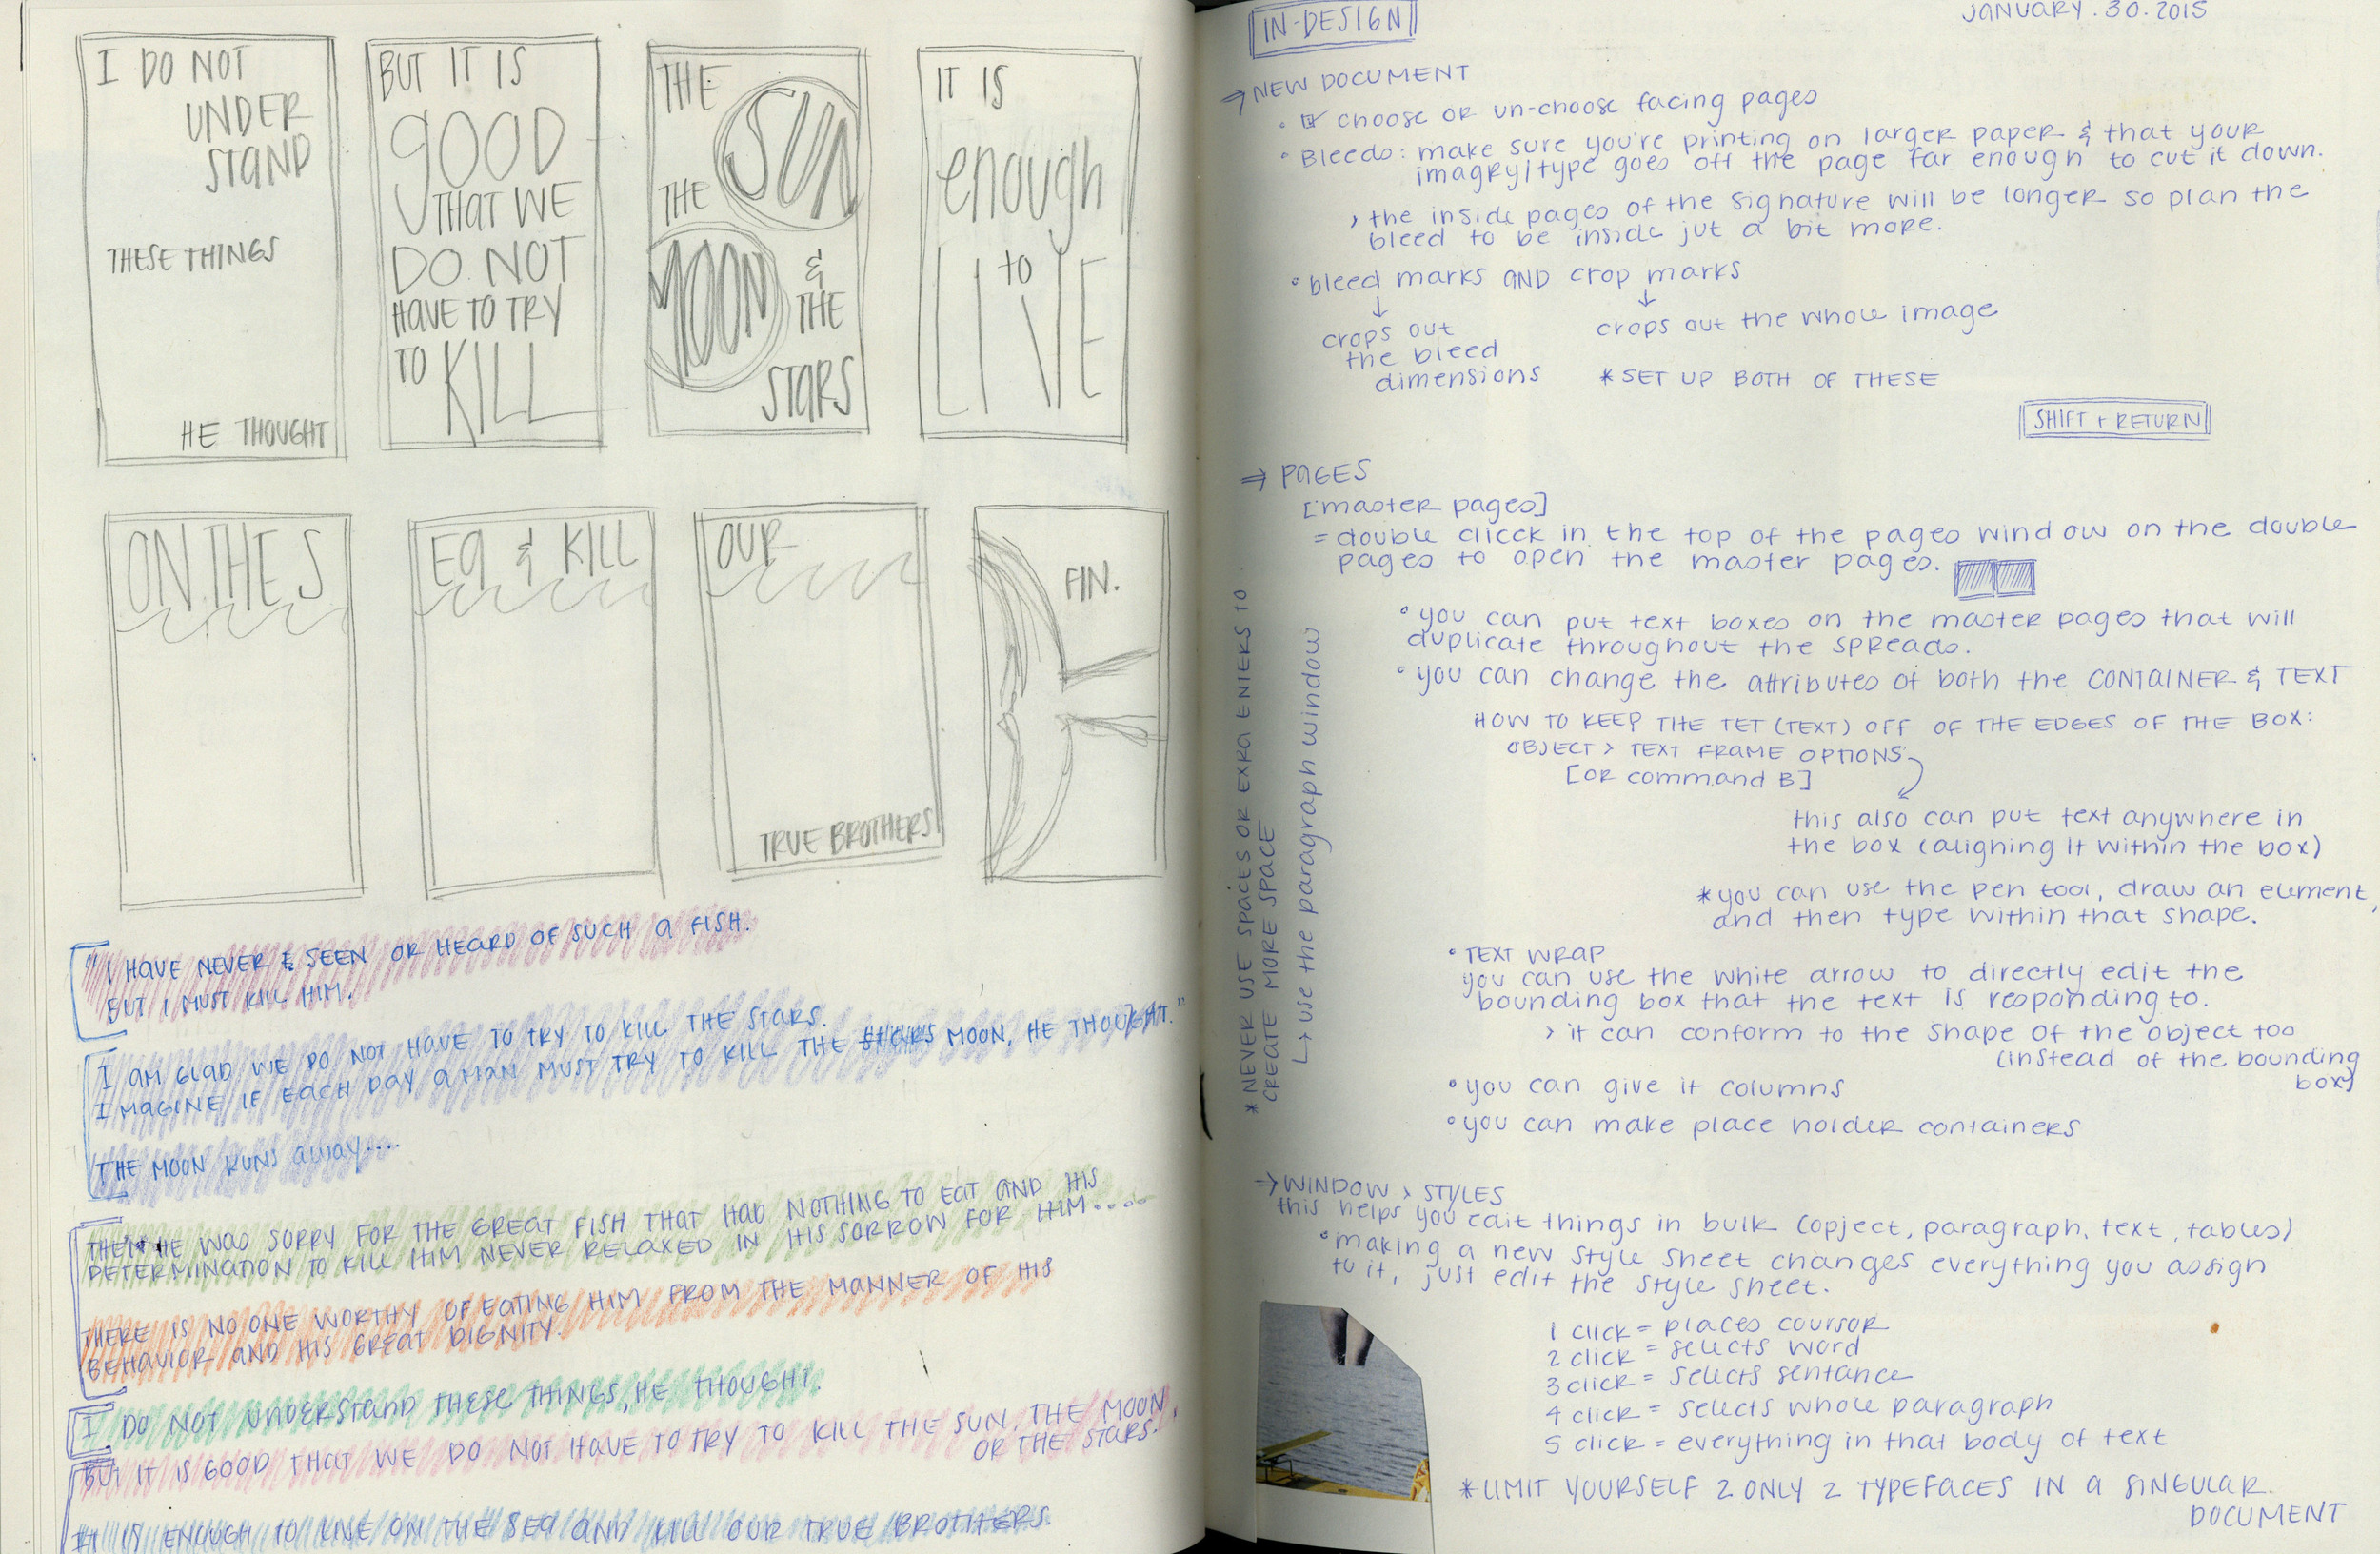 I DO NOT
UNDER
STAND
THESE THINGS
HE THOUGHT
BUT IT IS
GOOD
THAT WE
DO NOT
HAVE TO TRY
TO KILL
THE SUN
THE MOON
&
THE
STARS
IT IS
enough
to
LIVE
ON THE S
EA & KILL
OUR
TRUE BROTHERS
FIN.
"I HAVE NEVER & SEEN OR HEARD OF SUCH A FISH.
BUT I MUST KILL HIM.
I AM GLAD WE DO NOT HAVE TO TRY TO KILL THE STARS.
IMAGINE IF EACH DAY A MAN MUST TRY TO KILL THE STARS MOON, HE THOUGHT."
THE MOON RUNS away....
THEN HE WAS SORRY FOR THE GREAT FISH THAT HAD NOTHING TO EAT AND HIS
DETERMINATION TO KILL HIM NEVER RELAXED IN HIS SORROW FOR HIM....
THERE IS NO ONE WORTHY OF EATING HIM FROM THE MANNER OF HIS
BEHAVIOR AND HIS GREAT DIGNITY.
I DO NOT UNDERSTAND THESE THINGS, HE THOUGHT.
BUT IT IS GOOD THAT WE DO NOT HAVE TO TRY TO KILL THE SUN, THE MOON,
OR THE STARS.
IT IS ENOUGH TO LIVE ON THE SEA AND KILL OUR TRUE BROTHERS.
IN-DESIGN
JANUARY.30.2015
⇒ NEW DOCUMENT
• ☑ choose or un-choose facing pages
• Bleeds: make sure you're printing on larger paper & that your
imagry/type goes off the page far enough to cut it down.
> the inside pages of the signature will be longer so plan the
bleed to be inside jut a bit more.
• bleed marks AND crop marks
↓ ↓
crops out
the bleed
dimensions
crops out the whole image
* SET UP BOTH OF THESE
SHIFT + RETURN
⇒ PAGES
[master pages]
= double clicck in the top of the pages window on the double
pages to open the master pages.
• you can put text boxes on the master pages that will
duplicate throughout the spreads.
• you can change the attributes of both the CONTAINER & TEXT
HOW TO KEEP THE TET (TEXT) OFF OF THE EDGES OF THE BOX:
OBJECT > TEXT FRAME OPTIONS
[OR command B]
this also can put text anywhere in
the box (aligning it within the box)
* you can use the pen tool, draw an element,
and then type within that shape.
• TEXT WRAP
you can use the white arrow to directly edit the
bounding box that the text is responding to.
> it can conform to the shape of the object too
(instead of the bounding
box)
• you can give it columns
• you can make place holder containers
* NEVER USE SPACES OR EXRA ENTERS TO
CREATE MORE SPACE
↳ use the paragraph window
⇒ WINDOW > STYLES
this helps you edit things in bulk (opject, paragraph, text, tables)
• making a new style sheet changes everything you assign
to it, just edit the style sheet.
1 click = places coursor
2 click = selects word
3 click = selects sentance
4 click = selects whole paragraph
5 click = everything in that body of text
* LIMIT YOURSELF 2 ONLY 2 TYPEFACES IN A SINGULAR
DOCUMENT